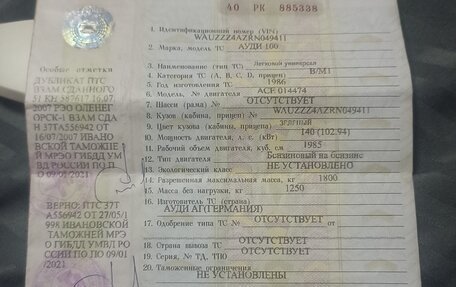 40 РК 885338
1. Идентификационный номер (VIN) WAUZZZ4AZRN049411
2. Марка, модель ТС АУДИ 100
3. Наименование (тип ТС) Легковой универсал
4. Категория ТС (А, В, С, D, прицеп) B/M1
5. Год изготовления ТС 1986
6. Модель, № двигателя ACE 014474
7. Шасси (рама) № ОТСУТСТВУЕТ
8. Кузов (кабина, прицеп) № WAUZZZ4AZRN049411
9. Цвет кузова (кабины, прицепа) ЗЕЛЕНЫЙ
10. Мощность двигателя, л. с. (кВт) 140 (102.94)
11. Рабочий объем двигателя, куб. см 1985
12. Тип двигателя Бензиновый на бензине
13. Экологический класс НЕ УСТАНОВЛЕНО
14. Разрешенная максимальная масса, kg 1800
15. Масса без нагрузки, кг 1250
16. Изготовитель ТС (страна)
АУДИ АГ(ГЕРМАНИЯ)
17. Одобрение типа ТС № ОТСУТСТВУЕТ от
18. Страна вывоза ТС ОТСУТСТВУЕТ
19. Серия, № ТД, ТПО ОТСУТСТВУЕТ
20. Таможенные ограничения
НЕ УСТАНОВЛЕНЫ
Особые отметки
ДУБЛИКАТ ПТС
ВЗАМ СДАННОГО
51 КН 587617 16.07.
2007 РЭО ОЛЕНЕГ
ОРСК-1 ВЗАМ СДА
Н 37ТА556942 ОТ
16/07/2007 ИВАНО
ВСКОЙ ТАМОЖНЕ
Й МРЭО ГИБДД УМ
ВД РОССИИ ПО П
О 09/01/2021
ВЕРНО: ПТС 37Т
А556942 ОТ 27/05/1
998 ИВАНОВСКОЙ
ТАМОЖНЕЙ МРЭ
О ГИБДД УМВД РО
ССИИ ПО ПО 09/01
/2021